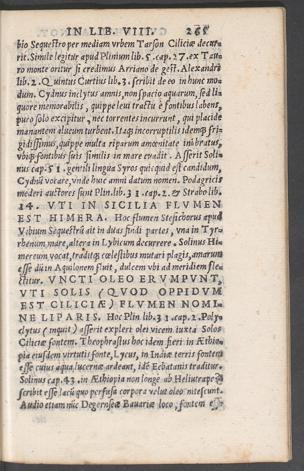 IN LIB. VIII. 265
bio Sequestro per mediam vrbem Tarson Ciliciæ decur-
rit. Simile legitur apud Plinium lib. 5. cap. 27. ex Tau
ro monte oritur si credimus Arriano de gest. Alexandri
lib. 2. Quintus Curtius lib. 3. scribit de eo in hunc mo-
dum. Cydnus inclytus amnis, non spacio aquarum, sed li-
quore memorabilis, quippe leui tractu è fontibus labens,
puro solo excipitur, nec torrentes incurrunt, qui placide
manantem alueum turbent. Itaq; incorruptilis idemq; fri-
gidissimus, quippe multa riparum amœnitate inũbratus,
vbiq; fontibus suis similis in mare euadit. Asserit Soli-
nus cap. 51. gentili lingua Syros quicquid est candidum,
Cydnũ vocare, vnde huic amni datum nomen. Podagricis
mederi auctores sunt Plin. lib. 31. cap. 2. & Strabo lib.
14. VTI IN SICILIA FLVMEN
EST HIMERA. Hoc flumen Stesichorus apud
Vibium Sequestrũ ait in duas findi partes, vna in Tyr-
rhenum mare, altera in Lybicum decurrere. Solinus Hi-
mereum vocat, traditq; cœlestibus mutari plagis, amarum
esse dũ in Aquilonem fluit, dulcem vbi ad meridiem fle-
ctitur. VNCTI OLEO ERVMPVNT,
VTI SOLIS (QVOD OPPIDVM
EST CILICIÆ) FLVMEN NOMI-
NE LIPARIS. Hoc Plin lib. 31. cap. 2. Poly-
clytus (inquit) asserit expleri olei vicem iuxta Solos
Ciliciæ fontem. Theophrastus hoc idem fieri in Æthio-
pia eiusdem virtutis fonte, Lycus, in Indiæ terris fontem
esse cuius aqua lucernæ ardeant, idẽ Ecbatanis traditur.
Solinus cap. 43. in Æthiopia non longe ab
scribit esse lacũ quo perfusa corpora velut oleo nitescunt.
Audio etiam nũc Degernsee Bauariæ loco, fontem esse